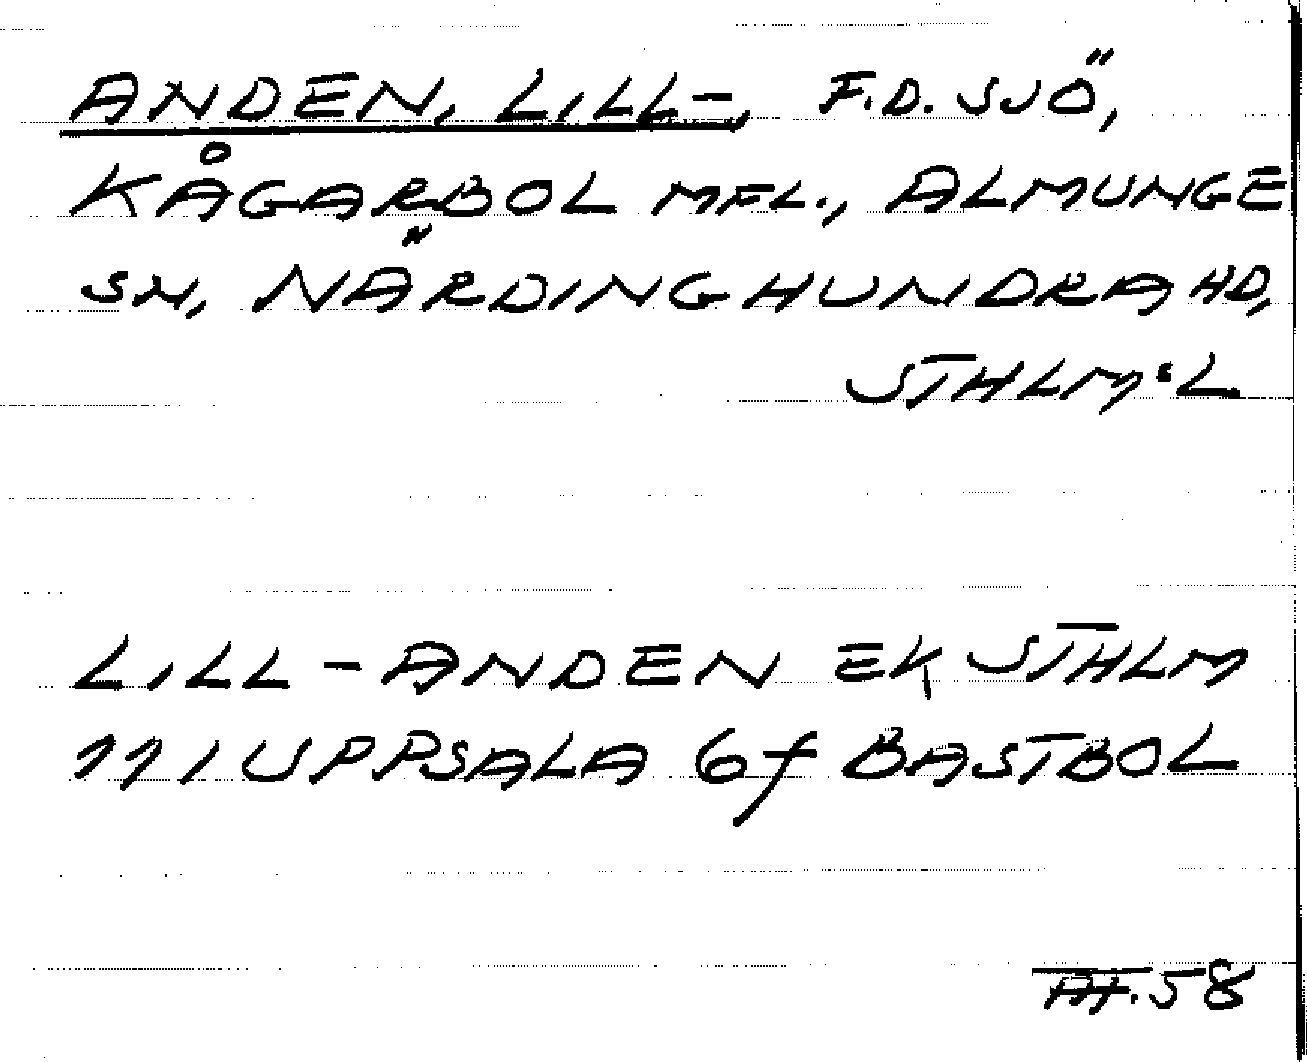 ANDEN, LILL-, F.D. SJÖ,
KÅGARBOL MFL., ALMUNGE
SN, NÄRDINGHUNDRA HD,
STHLM:L
LILL-ANDEN EK STHLM
111 UPPSALA 6f BASTBOL
58